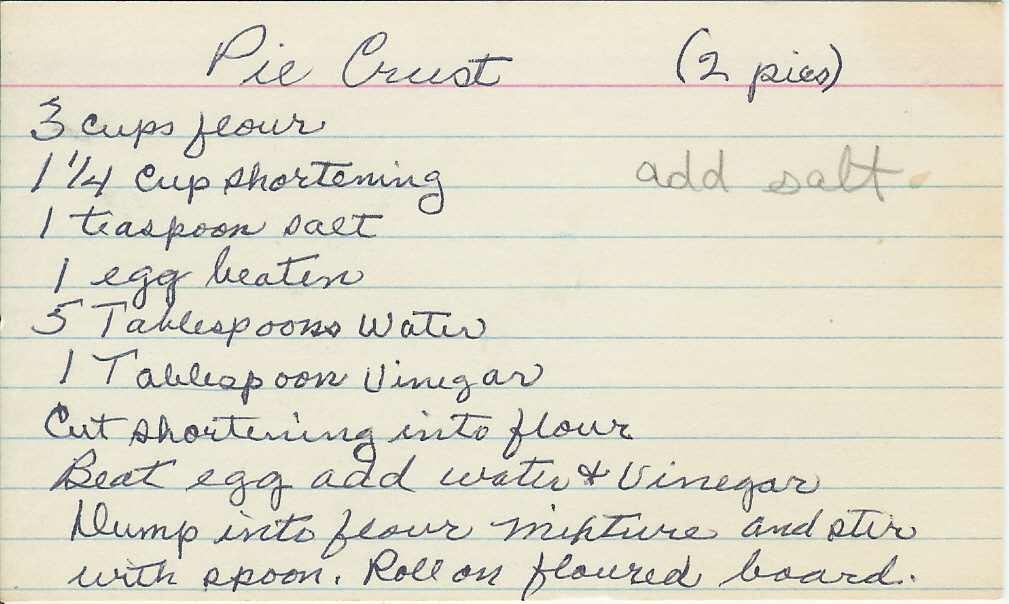 Pie Crust (2 pies)
3 cups flour
1 1/4 cup shortening add salt
1 teaspoon salt
1 egg beaten
5 Tablespoons water
1 Tablespoon Vinegar
Cut shortening into flour
Beat egg add water & Vinegar
Dump into flour mixture and stir
with spoon. Roll on floured board.